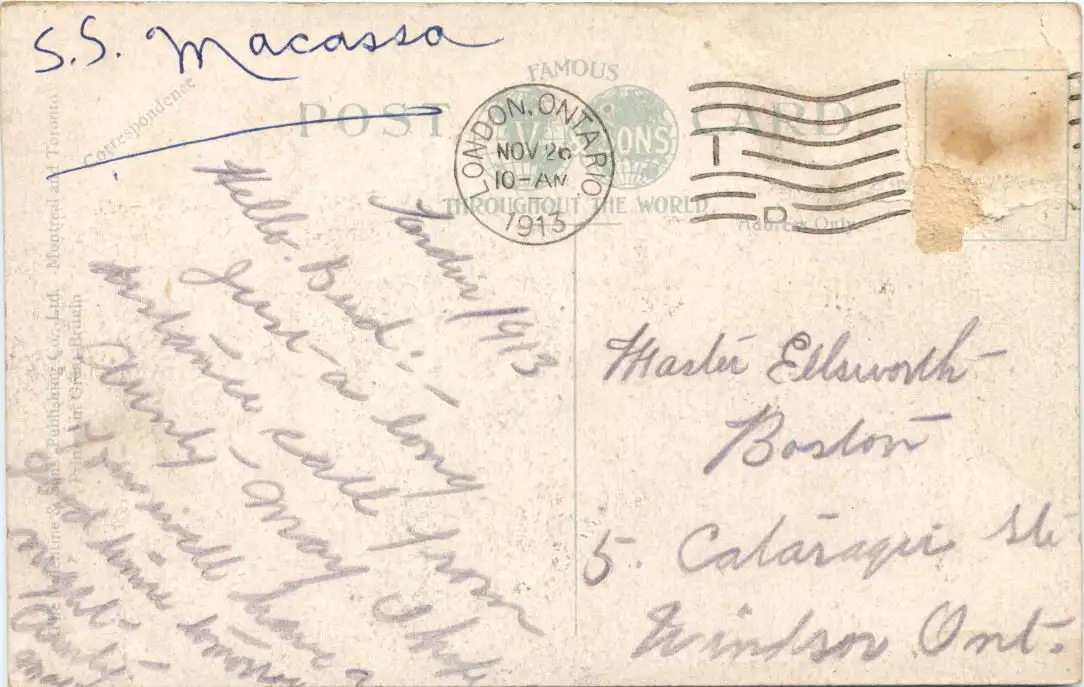 S.S. Macassa
Correspondence
FAMOUS
POST CARD
THROUGHOUT THE WORLD
Address Only
LONDON, ONTARIO
NOV 26
10-AM
1913
Montreal and Toronto
Publishing Co., Ltd.
Printed in Great Britain
1913
Hello. Bud:-
Just-a long
distance call from
Aunty-May. I hope
You will have a
good time tomorrow
night-
Aunty-
May
Master Ellsworth
Boston
5. Cataraqui Ste
Windsor Ont.